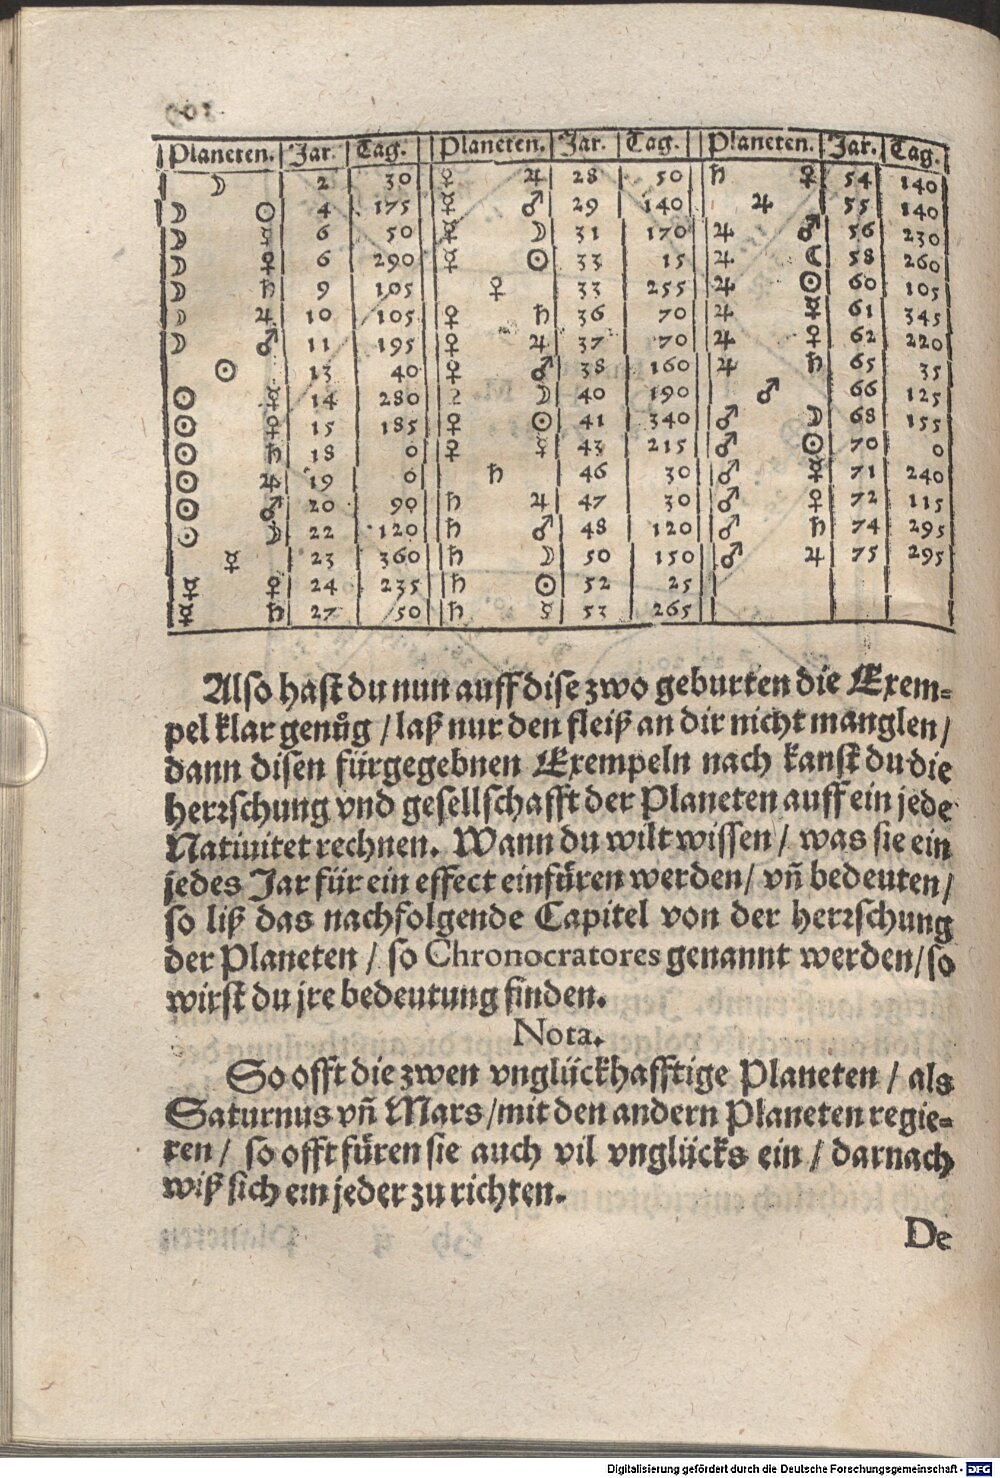 Planeten. Jar. Tag. Planeten. Jar. Tag. Planeten. Jar. Tag.
☽ 2 30 ☿ ♃ 28 50 ♄ ♀ 54 140
☽ ☉ 4 175 ☿ ♂ 29 140 ♃ 55 140
☽ ☿ 6 50 ☿ ☽ 31 170 ♃ ♂ 56 230
☽ ♀ 6 290 ☿ ☉ 33 15 ♃ ☾ 58 260
☽ ♄ 9 105 ♀ 33 255 ♃ ☉ 60 105
☽ ♃ 10 105 ♀ ♄ 36 70 ♃ ☿ 61 345
☽ ♂ 11 195 ♀ ♃ 37 70 ♃ ♀ 62 220
☉ 13 40 ♀ ♂ 38 160 ♃ ♄ 65 35
☉ ☿ 14 280 ♀ ☽ 40 190 ♂ 66 125
☉ ♀ 15 185 ♀ ☉ 41 340 ♂ ☽ 68 155
☉ ♄ 18 0 ♀ ☿ 43 215 ♂ ☉ 70 0
☉ ♃ 19 0 ♄ 46 30 ♂ ☿ 71 240
☉ ♂ 20 90 ♄ ♃ 47 30 ♂ ♀ 72 115
☉ ☽ 22 120 ♄ ♂ 48 120 ♂ ♄ 74 295
☿ 23 360 ♄ ☽ 50 150 ♂ ♃ 75 295
☿ ♀ 24 235 ♄ ☉ 52 25
☿ ♄ 27 50 ♄ ☿ 53 265
Also hast du nun auff dise zwo geburten die Exem-
pel klar genůg / laß nur den fleiß an dir nicht manglen /
dann disen fürgegebnen Exempeln nach kanst du die
herrschung vnd gesellschafft der Planeten auff ein jede
Natiuitet rechnen. Wann du wilt wissen / was sie ein
jedes Jar für ein effect einfüren werden / vñ bedeuten /
so liß das nachfolgende Capitel von der herrschung
der Planeten / so Chronocratores genannt werden / so
wirst du jre bedeutung finden.
Nota.
So offt die zwen vnglückhafftige Planeten / als
Saturnus vñ Mars / mit den andern Planeten regie-
ren / so offt füren sie auch vil vnglücks ein / darnach
wiß sich ein jeder zu richten.
De
Digitalisierung gefördert durch die Deutsche Forschungsgemeinschaft - DFG